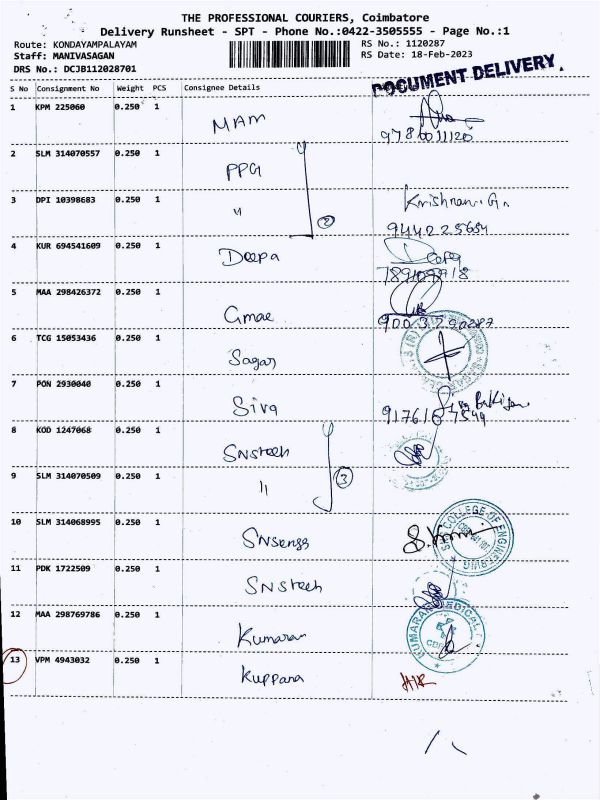 THE PROFESSIONAL COURIERS, Coimbatore
Delivery Runsheet - SPT - Phone No.:0422-3505555 - Page No.:1
Route: KONDAYAMPALAYAM RS No.: 1120287
Staff: MANIVASAGAN RS Date: 18-Feb-2023
DRS No.: DCJB112028701
DOCUMENT DELIVERY.
S No Consignment No Weight PCS Consignee Details
1 KPM 225060 0.250 1 MAM
2 SLM 314070557 0.250 1 PPG
3 DPI 10398683 0.250 1 " 2
9442225654
4 KUR 694541609 0.250 1 Deepa
5 MAA 298426372 0.250 1 Gmae
6 TCG 15053436 0.250 1 Sagar
7 PON 2930040 0.250 1 Siva
8 KOD 1247068 0.250 1 SNSteeh
9 SLM 314070509 0.250 1 " 3
10 SLM 314068995 0.250 1 SNSengg
COLLEGE OF ENGINEERING
11 PDK 1722509 0.250 1 SNSteeh
12 MAA 298769786 0.250 1 Kumaran
KUMARAN MEDICAL
13 VPM 4943032 0.250 1 Kuppana